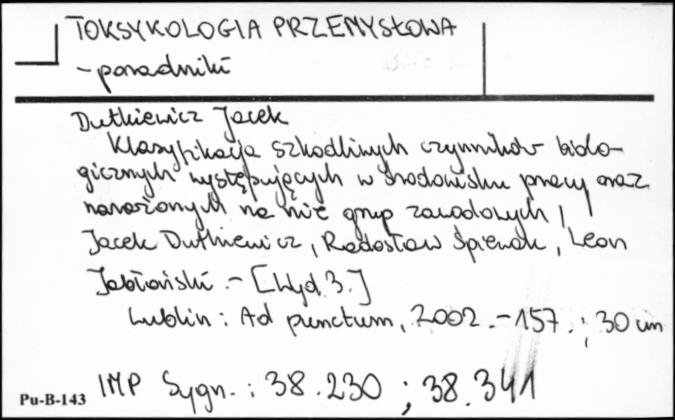 TOKSYKOLOGIA PRZEMYSŁOWA
- poradniki
Dutkiewicz Jacek
Klasyfikacja szkodliwych czynników biolo-
gicznych występujących w środowisku pracy oraz
narażonych na nie grup zawodowych /
Jacek Dutkiewicz, Radosław Śpiewak, Leon
Jabłoński. - [Wyd. 3.]
Lublin : Ad punctum, 2002. - 157. ; 30 cm
IMP Sygn. : 38.230 ; 38.341
Pu-B-143